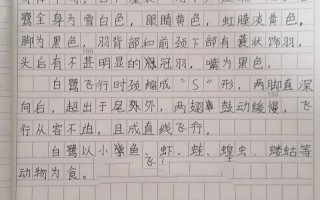 鹭全身为雪白色，眼睛黄色，虹膜淡黄色，
脚为黑色，羽背部和前颈下部有蓑状饰羽，
头白有不甚明显的冠羽，嘴为黑色。
白鹭飞行时颈缩成"S"形，两脚直深
向白，超出于尾外外，两翅鼓动缓慢，飞
行从容不迫，且成直线飞行。
白鹭以小鱼、虾、蛙、蝗虫、蝼蛄等
动物为食。